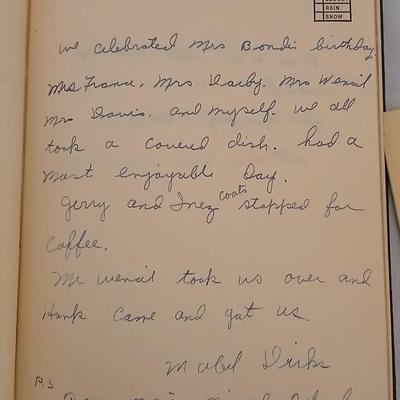 RAIN
SNOW
we celebrated Mrs Bondis birthday
Mrs France. Mrs Darby. Mrs Wenzil
Mrs Davis. and myself. we all
took a covered dish. had a
most enjoyable Day.
Gerry and Inez coats stopped for
coffee.
Mr wenzil took us over and
Hank came and got us.
Mabel Dirks
P.S